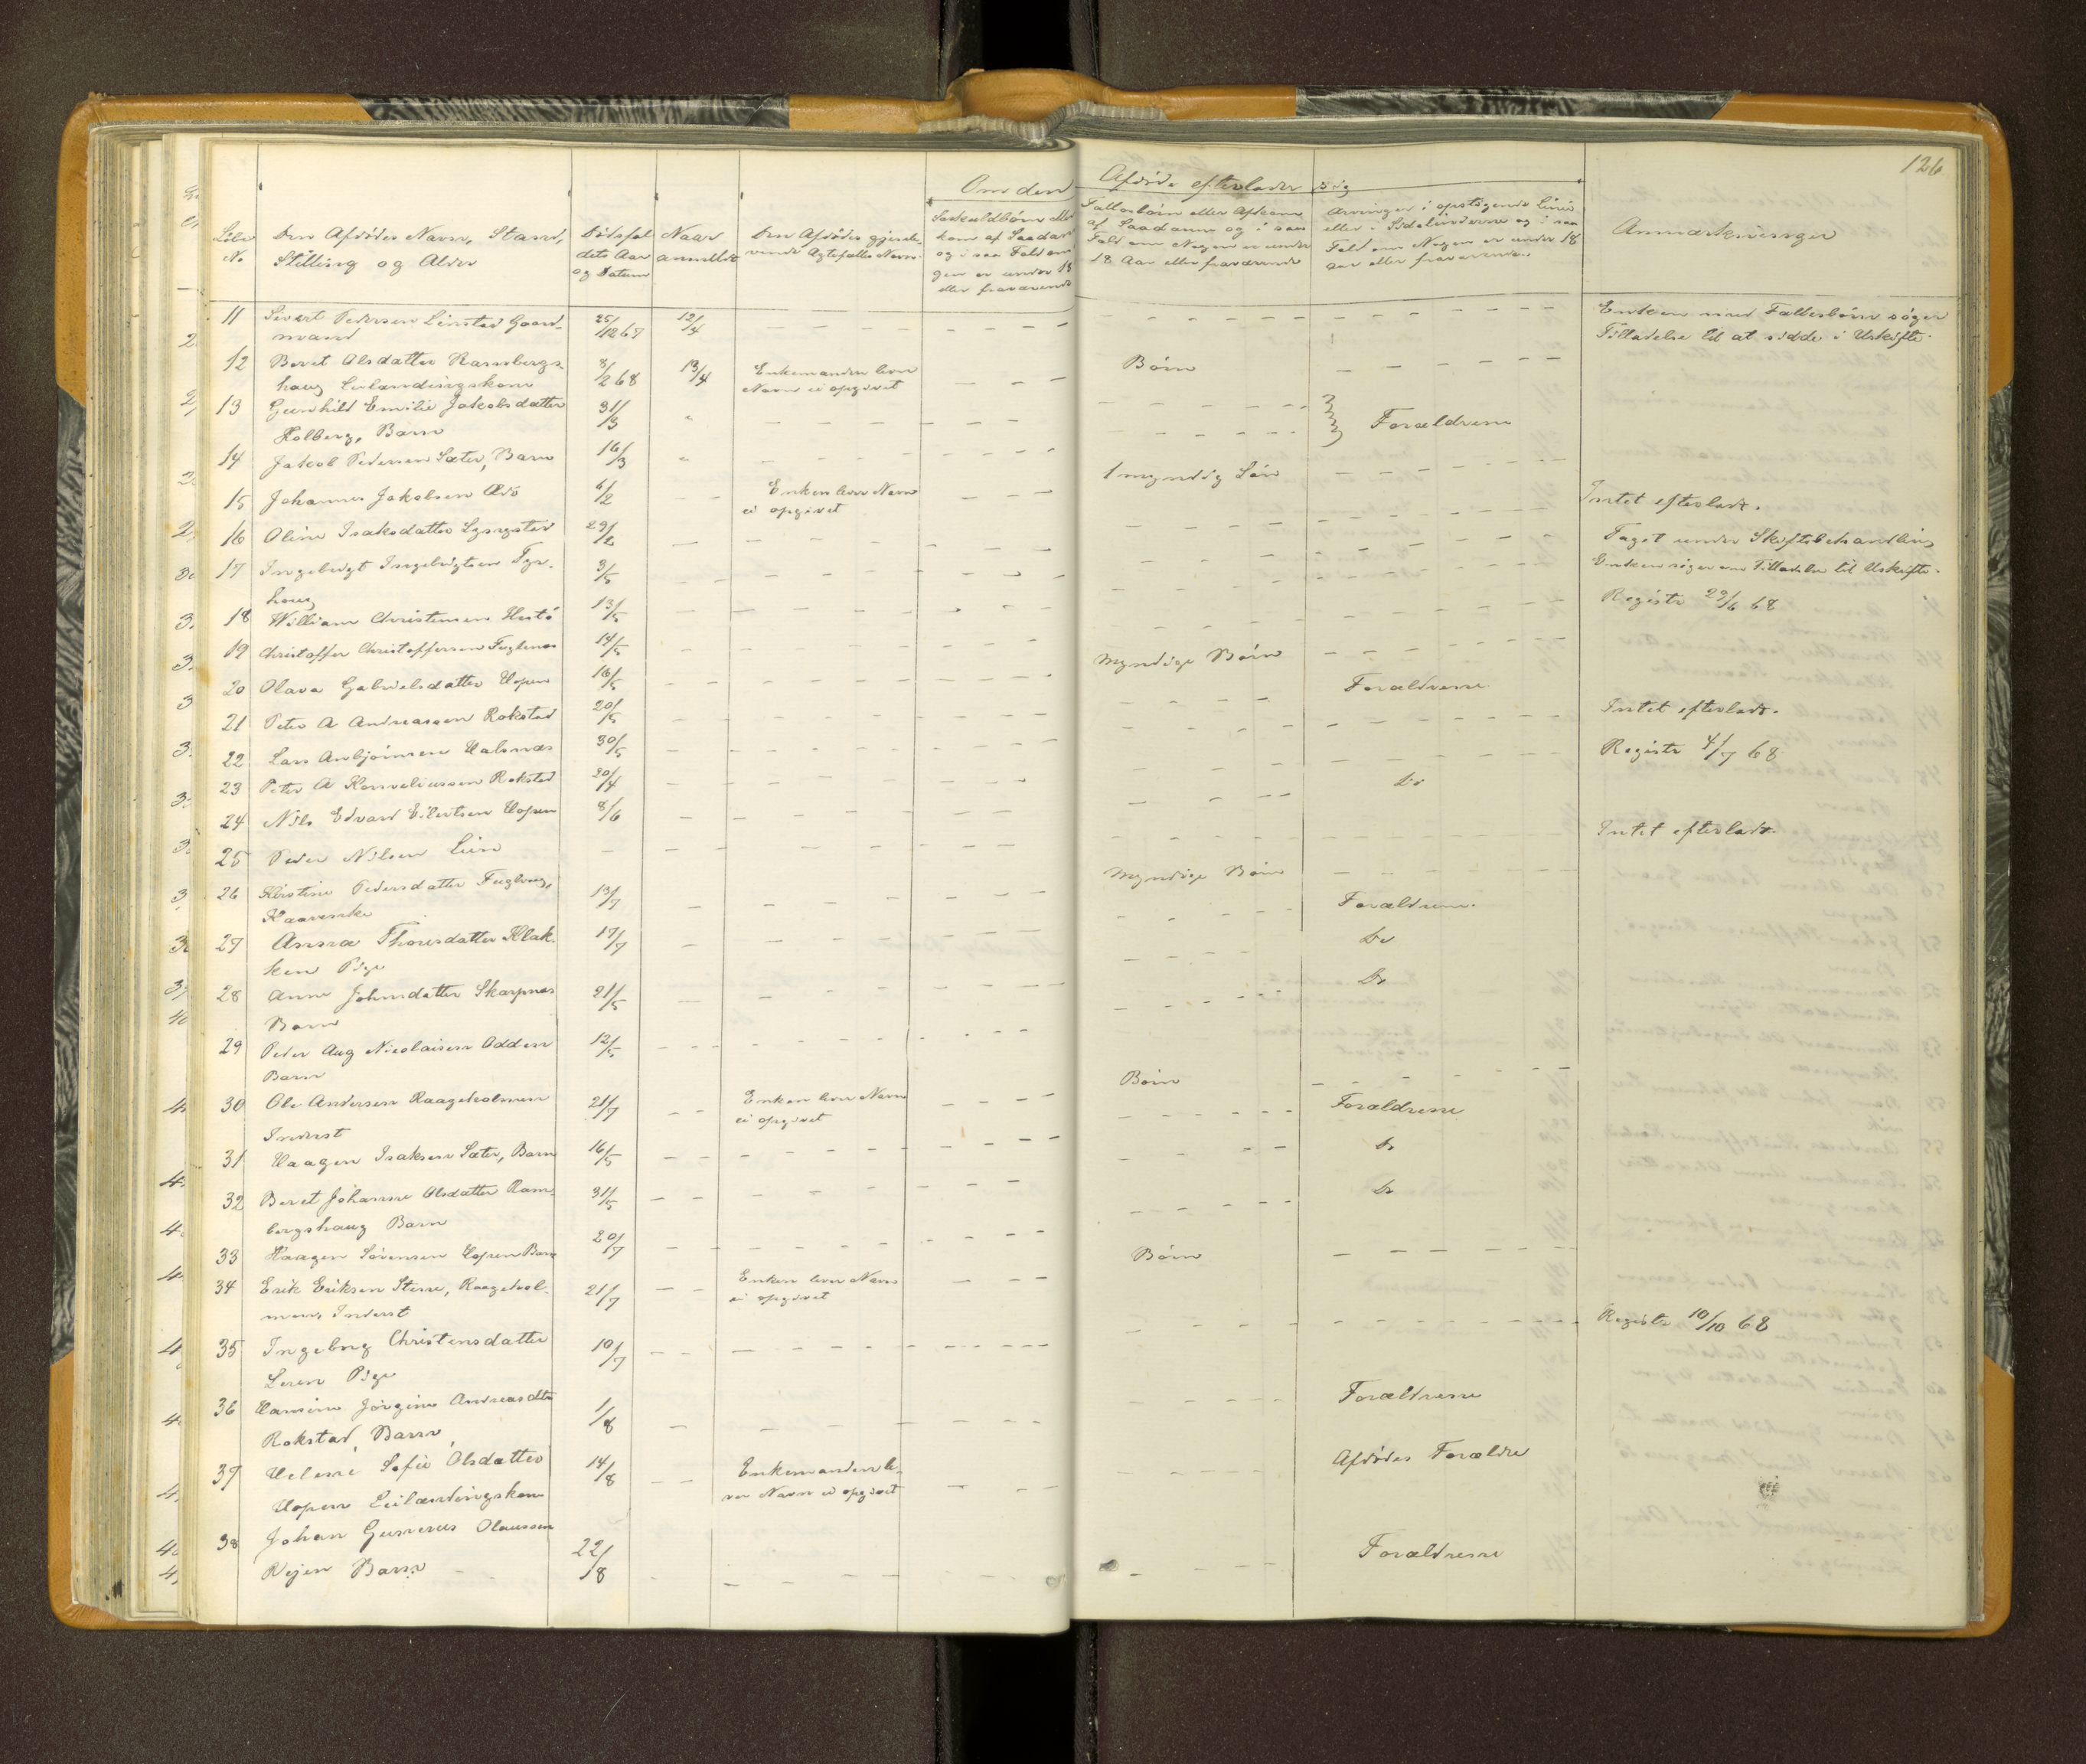 126
Om den Afdøde efterlader sig
Løbe No
Den Afdødes Navn, Stand, Stilling og Alder
Dødsfaldets Aar og Datum
Naar anmeldt
Den Afdødes gjenlevende Ægtefælles Navn
Særkuldbørn eller kom af Saadan og i saa Fald om gen er under 18 eller fraværende
Fællesbørn eller Afkom af Saadanne og i saa Fald om Nogen er under 18 Aar eller fraværende
Arvinger i opstigende Linie eller i Sidelinierne og i saa Fald om Nogen er under 18 aar eller fraværende
Anmærkninger
11 Sivert Pedersen Linstad Gaard- 25/12 67 12/4 Enken med Fællesbørn søger
mand Tilladelse til at sidde i Uskifte.
12 Beret Olsdatter Ramsbergs- 8/2 68 13/4 Enkemanden lever Børn
haug Leilændingskone Navn ei opgivet
13 Gunhild Emilie Jakobsdatter 31/3 " Forældrene
Holberg, Barn
14 Jakob Pedersen Sæter, Barn 16/3 "
15 Johannes Jakobsen Ødø 6/2 Enken lever Navn 1 myndig Søn Intet efterladt.
ei opgivet
16 Oline Isaksdatter Lyngstad 29/2 Taget under Skiftebehandling
17 Ingebrigt Ingebrigtsen Fyr- 3/5 Enken søger om Tilladelse til Uskifte.
haug
18 William Christensen Hestø 13/5 Registr 29/6 68
19 Christoffer Christoffersen Fuglenes 14/5 Myndige Børn
20 Olava Gabrielsdatter Hopen 16/5 Forældrene
21 Peter A Andreassen Rokstad 20/5 Intet efterladt.
22 Lars Anbjørnsen Halsnæs 30/5 Registr 4/7 68
23 Peter A Korneliussen Rokstad 20/4 Do
24 Nils Edvard Eilertsen Hopen 8/6
25 Peder Nilsen Lien Intet efterladt.
26 Kirstine Pedersdatter Fuglvog, 13/7 Myndige Børn
Kaarenke
27 Anna Thoresdatter Klak- 17/7 Forældrene.
ken Pige
28 Anne Johnsdatter Skarpnes 21/5 Do
Barn
29 Peder Aug Nicolaisen Odden 12/5 Do
Barn
30 Ole Andersen Raageholmen 21/7 Enken lever Navn Børn
Inderst ei opgivet
31 Haagen Isaksen Sæter, Barn 16/5 Forældrene
32 Beret Johanne Olsdatter Ram- 31/5 Do
bergshaug Barn
33 Haagen Sørensen Hopen Barn 20/7 Do
34 Erik Eriksen Stene, Raagehol- 21/7 Enken lever Navn Børn
men, Inderst ei opgivet
35 Ingeborg Christensdatter 10/7 Registr 10/10 68
Leren Pige
36 Hansine Jørgine Andreasdtr 1/8 Forældrene
Rokstad, Barn
37 Helene Sofie Olsdatter 14/8 Enkemanden le- Afdødes Forældre
Hopen Leilændingskone ver Navn ei opgivet
38 Johan Gunerus Olaussen
Vejen Barn 22/8 Forældrene